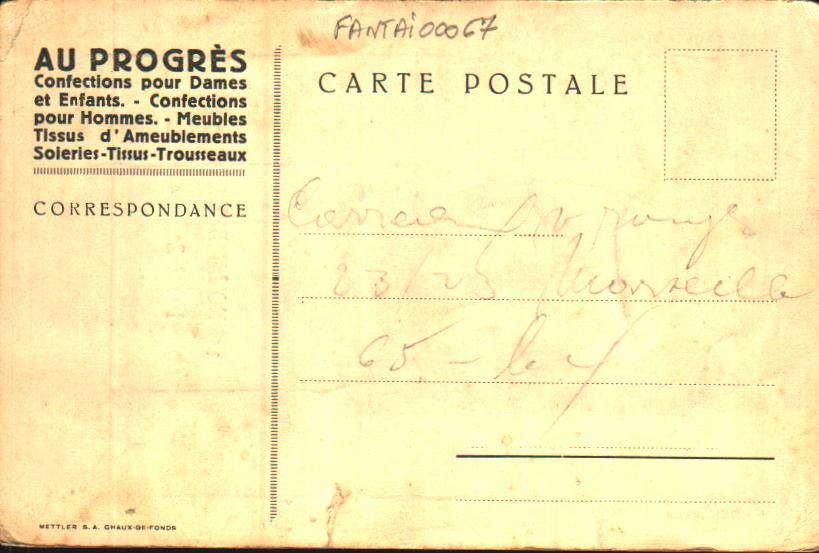 FANTAi00067
AU PROGRÈS
Confections pour Dames
et Enfants. - Confections
pour Hommes. - Meubles
Tissus d'Ameublements
Soieries-Tissus-Trousseaux
CORRESPONDANCE
METTLER S.A. CHAUX-DE-FONDS
CARTE POSTALE
rouge
23/25 Marseille
65.-